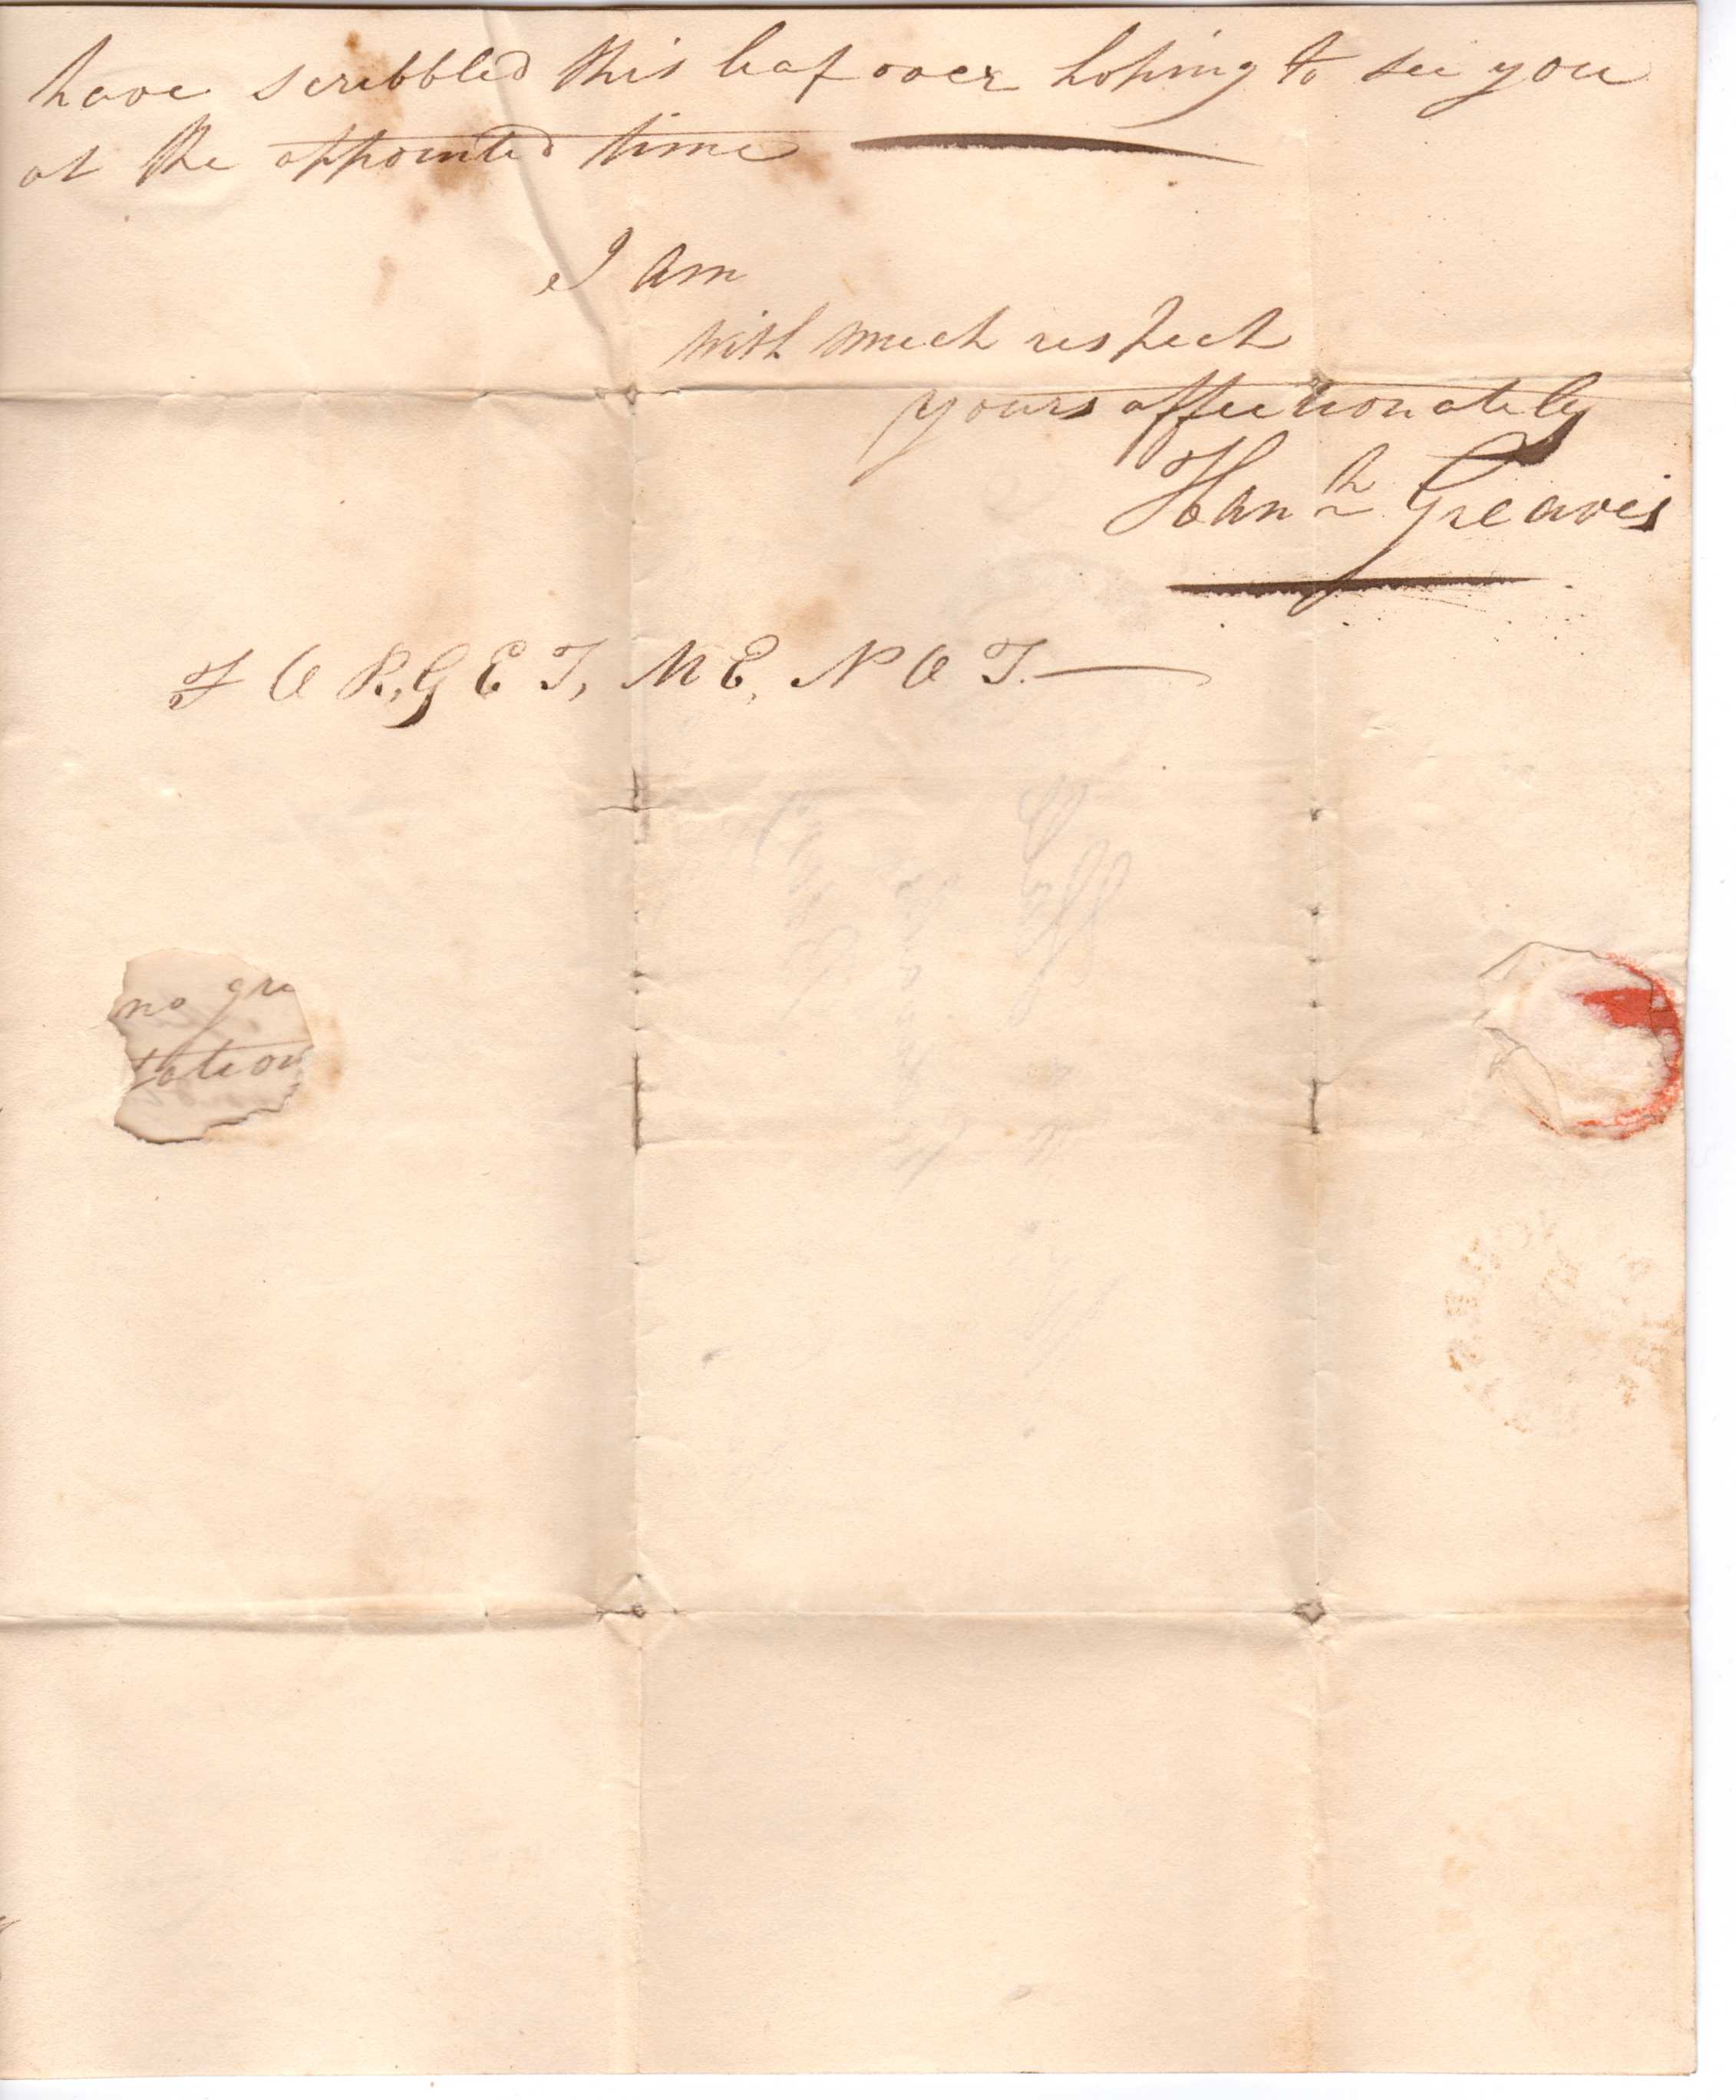 have scribbled this leaf over hoping to see you
at the appointed time
I am
with much respect
yours affectionately
Hanh Greaves
FOR,GET, ME, NOT.
no gre
tation